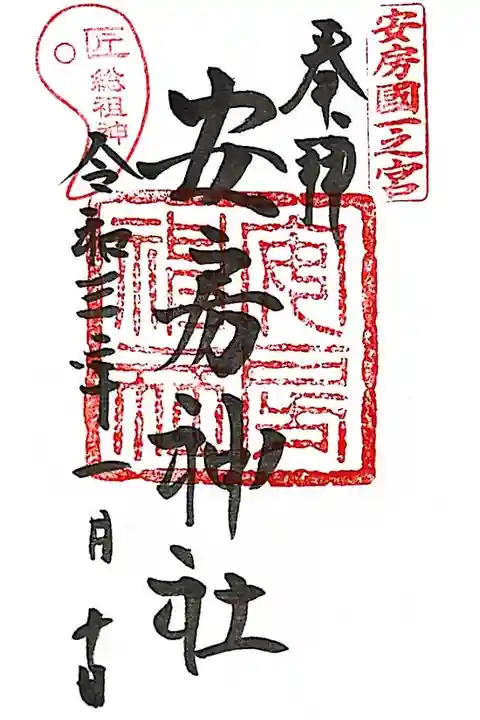 安房國一之宮
奉拝
安房神社
安房
神社
匠
総祖神
令和三年一月十日